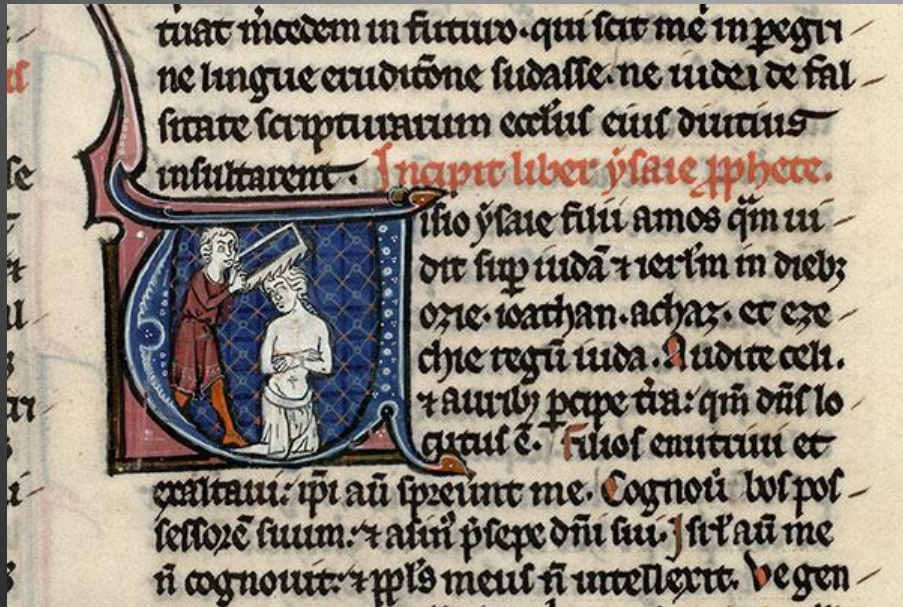 tuat m̄cedem in futuro. qui scit me in p̱egri
ne lingue eruditōne sudasse. ne iudei de fal
sitate scripturarum eccl̄iis eius diutius
insultarent. Incipit liber ysaie p̱phete.
isio ysaie filii amos q̄m ui
dit sup̱ iudā ⁊ ierl̄m in diebꝫ
ozie. ioathan. achaz. et eze
chie regū iuda. Audite celi.
⁊ auribꝫ p̱cipe t̄ra: qm̄ dn̄s lo
cutus ē. Filios enutriui et
exaltaui: ip̄i aū spreuer̄t me. Cognouit bos pos
sessorē suum: ⁊ asinꝰ p̄sepe dn̄i sui. Isrl̄ aū me
n̄ cognouit: ⁊ pp̄ls meus n̄ intellexit. Ve gen